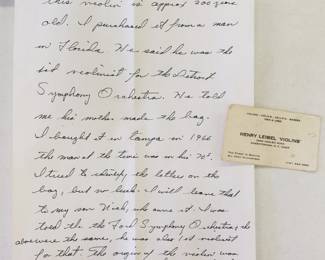 this violin is approx 200 years
old. I purchased it from a man
in Florida. He said he was the
1st violinist for the Detroit
Symphony Orchestra. He told
me his mother made the bag.
I bought it in Tampa in 1966
the man at the time was in his 70's.
I tried to the letter on the
bag, but no luck. I will leave that
to my son Nick, who owns it. I was
told the the Ford Symphony Orchestra, the
above were the same, he was also 1st violinist
for that. The origin of the violin was
HENRY LEIBEL VIOLINS